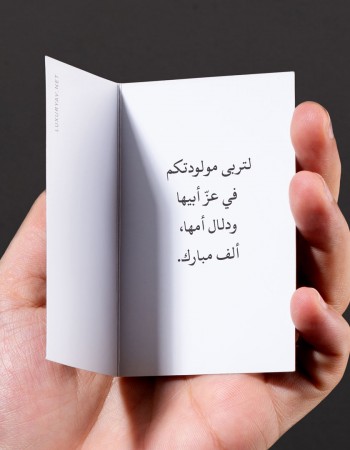 LUXURYBY.NET
لتربى مولودتكم
في عزّ أبيها
ودلال أمها،
ألف مبارك.